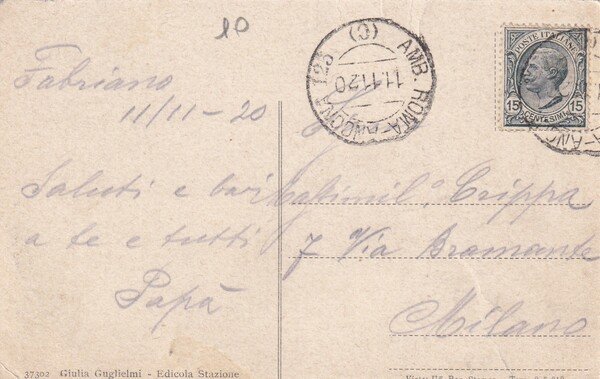 10
Fabriano
11/11-20
Saluti e baci
a te e tutti
Papà
37302 Giulia Guglielmi - Edicola Stazione
AMB. ROMA-ANCONA 123
(O)
11.11.20
POSTE ITALIANE
15 15
CENTESIMI
Crippa
7 Via Bramante
Milano